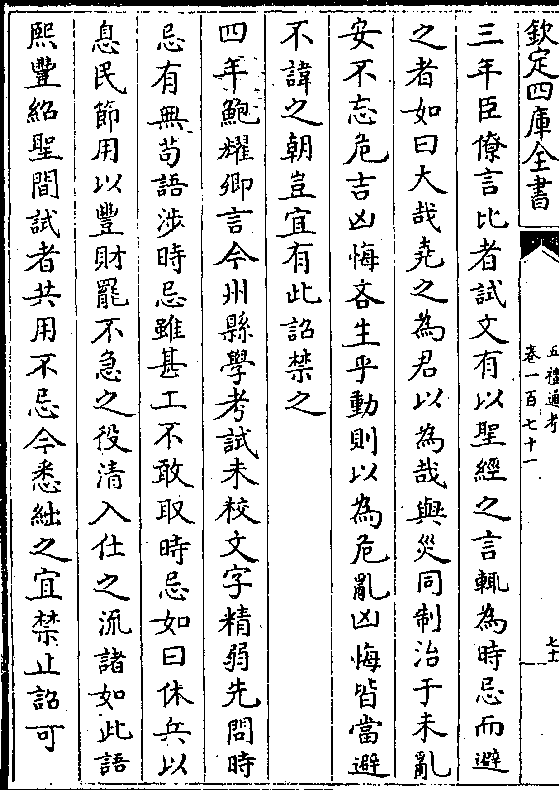 欽定四庫全書
五禮通考
卷一百七十一
七十
三年臣僚言比者試文有以聖經之言輒為時忌而避
之者如曰大哉堯之為君以為哉與災同制治于未亂
安不忘危吉凶悔吝生乎動則以為危亂凶悔皆當避
不諱之朝豈宜有此詔禁之
四年鮑耀卿言今州縣學考試未校文字精弱先問時
忌有無茍語涉時忌雖甚工不敢取時忌如曰休兵以
息民節用以豐財罷不急之役清入仕之流諸如此語
熙豐紹聖間試者共用不忌今悉絀之宜禁止詔可